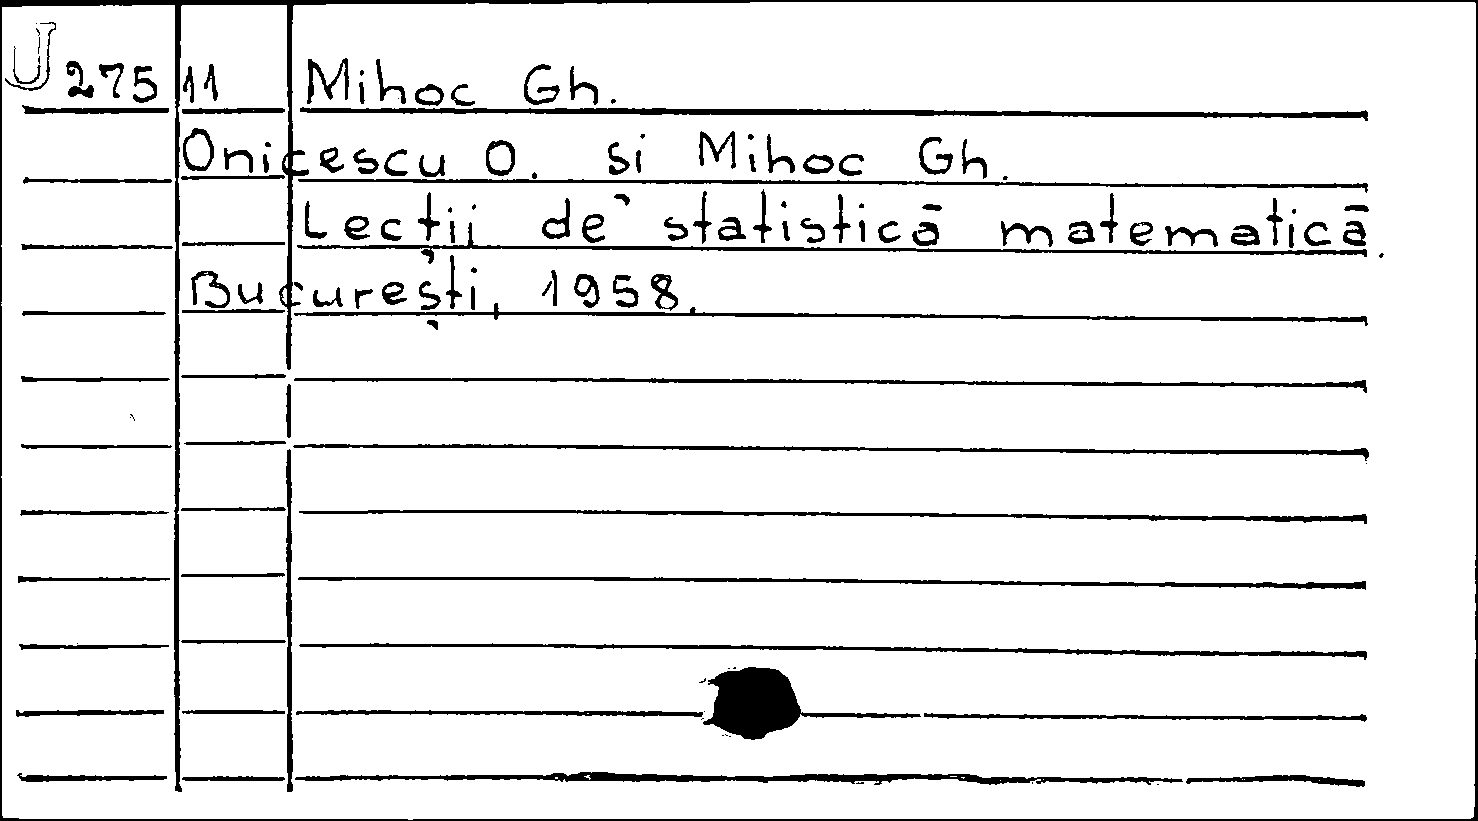 U 275 11 Mihoc Gh.
Onicescu O. și Mihoc Gh.
Lecții de statistică matematică.
București, 1958.